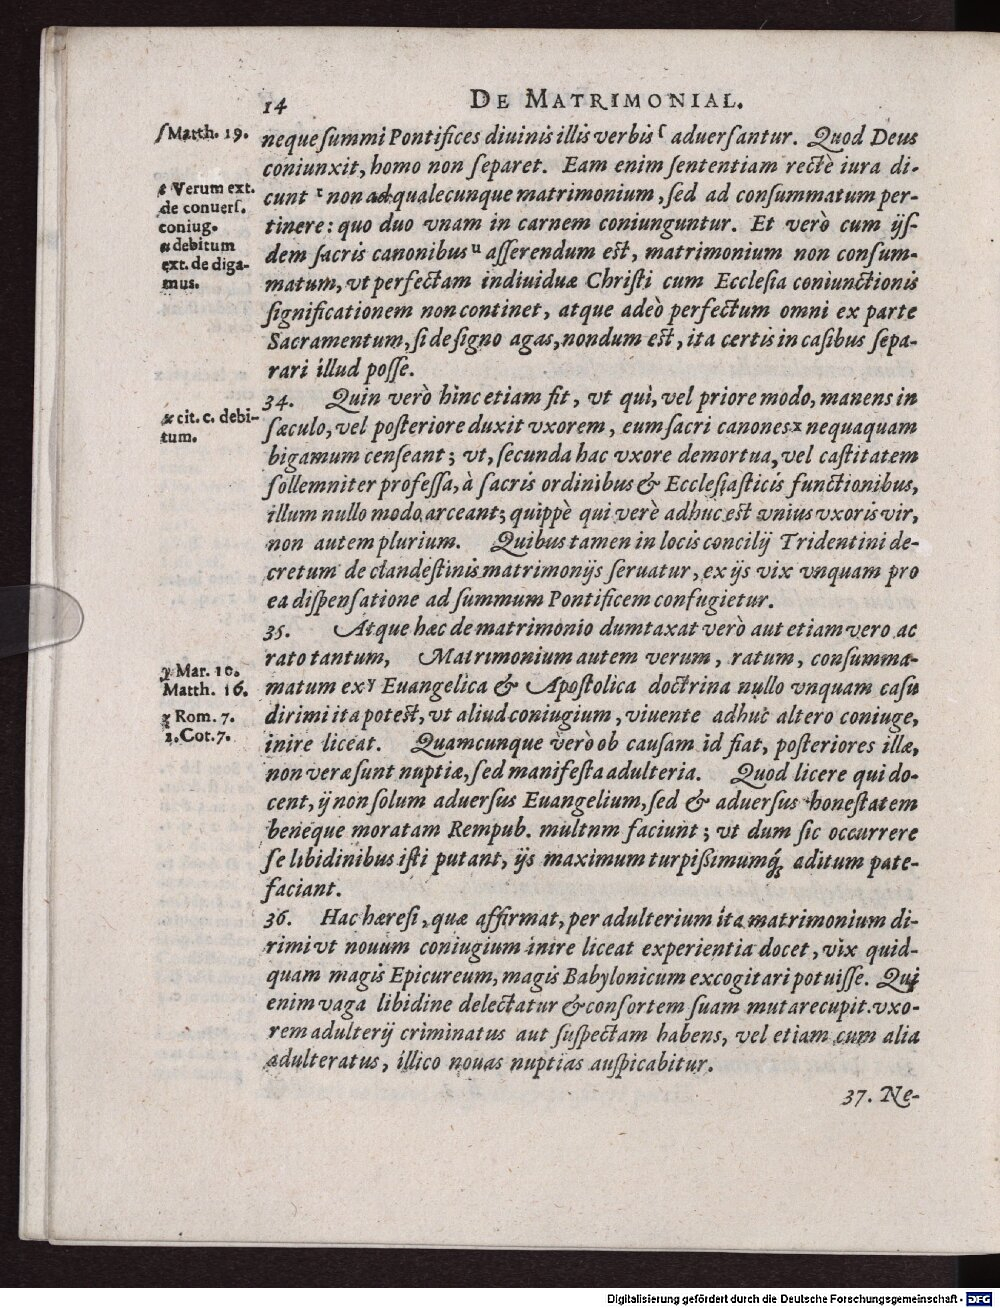 14 DE MATRIMONIAL.
ſ Matth. 19.
neque ſummi Pontifices diuinis illis verbis ſ aduerſantur. Quod Deus
coniunxit, homo non ſeparet. Eam enim ſententiam rectè iura di-
t Verum ext.
de conuerſ.
coniug.
u debitum
ext. de diga-
mus.
cunt t non ad qualecunque matrimonium, ſed ad conſummatum per-
tinere: quo duo vnam in carnem coniunguntur. Et verò cum ijſ-
dem ſacris canonibus u aſſerendum est, matrimonium non conſum-
matum, vt perfectam indiuiduæ Chriſti cum Eccleſia coniunctionis
ſignificationem non continet, atque adeò perfectum omni ex parte
Sacramentum, ſi de ſigno agas, nondum est, ita certis in caſibus ſepa-
rari illud poſſe.
34. Quin verò hinc etiam fit, vt qui, vel priore modo, manens in
x cit. c. debi-
tum.
ſæculo, vel poſteriore duxit vxorem, eum ſacri canones x nequaquam
bigamum cenſeant; vt, ſecunda hac vxore demortua, vel caſtitatem
ſollemniter profeſſa, à ſacris ordinibus & Eccleſiaſticis functionibus,
illum nullo modo arceant; quippè qui verè adhuc est vnius vxoris vir,
non autem plurium. Quibus tamen in locis concilij Tridentini de-
cretum de clandeſtinis matrimonijs ſeruatur, ex ijs vix vnquam pro
ea diſpenſatione ad ſummum Pontificem confugietur.
35. Atque hæc de matrimonio dumtaxat verò aut etiam vero ac
rato tantum, Matrimonium autem verum, ratum, conſumma-
y Mar. 10.
Matth. 16.
z Rom. 7.
1. Cor. 7.
matum ex y Euangelica & Apoſtolica doctrina nullo vnquam caſu
dirimi ita poteſt, vt aliud coniugium, viuente adhuc altero coniuge,
inire liceat. Quamcunque verò ob cauſam id fiat, poſteriores illæ,
non veræ ſunt nuptiæ, ſed manifeſta adulteria. Quod licere qui do-
cent, ij non ſolum aduerſus Euangelium, ſed & aduerſus honeſtatem
beneque moratam Rempub. multnm faciunt; vt dum ſic occurrere
ſe libidinibus iſti putant, ijs maximum turpißimumq́; aditum pate-
faciant.
36. Hac hæreſi, quæ affirmat, per adulterium ita matrimonium di-
rimi vt nouum coniugium inire liceat experientia docet, vix quid-
quam magis Epicureum, magis Babylonicum excogitari potuiſſe. Qui
enim vaga libidine delectatur & conſortem ſuam mutare cupit. vxo-
rem adulterij criminatus aut ſuſpectam habens, vel etiam cum alia
adulteratus, illico nouas nuptias auſpicabitur.
37. Ne-
Digitalisierung gefördert durch die Deutsche Forschungsgemeinschaft - DFG